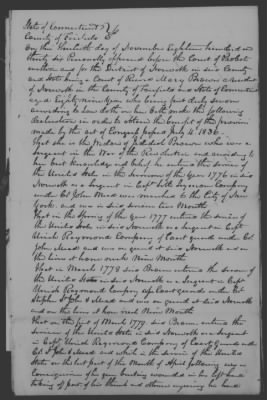 State of Connecticut } ss
County of Fairfield
On this day of November Eighteen hundred and
thirty six Personally appeared before the Court of Probate
within and for the District of Norwalk in said County
and State being a Court of Record Mary Brown a resident
of Norwalk in the County of Fairfield and State of Connecticut
aged Eighty Nine Years who being first duly sworn
according to Law doth on her oath make the following
Declaration in order to obtain the benefit of the provision
made by the act of Congress passed July 4th 1836.
That she is the Widow of Jedediah Brown who was a
Sergeant in the War of the Revolution and according to
her best knowledge and belief he entered the service of
the United States in the Summer of the Year 1776 in said
Norwalk as a Sergeant in Capt Company
under Col John Mead was marched to the City of New
York and was in said service Month
That in the Spring of the Year 1777 entered the service of
the United States in said Norwalk as a Sergeant in Capt
Uriah Raymond Company of Coast guard under Col
John Mead and was on guard at said Norwalk and on
the lines at horse neck Nine Months
That in March 1778 said Brown entered the service of
the United States in said Norwalk as a Sergeant in Capt
Uriah Raymond Company of Coast guards under Col
Stephen St John & Mead and was on guard at said Norwalk
and on the lines at horse neck Nine Month
That on the first of March 1779 said Brown entered the
service of the United States in said Norwalk as a Sergeant
in Capt Uriah Raymonds Company of Coast Guards under
Col St John & Mead and which in the service of the United
States on the last part of the Month of April following was in
Consequence of his gun bursting wounded in his left hand
taking off part of his thumb and otherwise injuring his hand